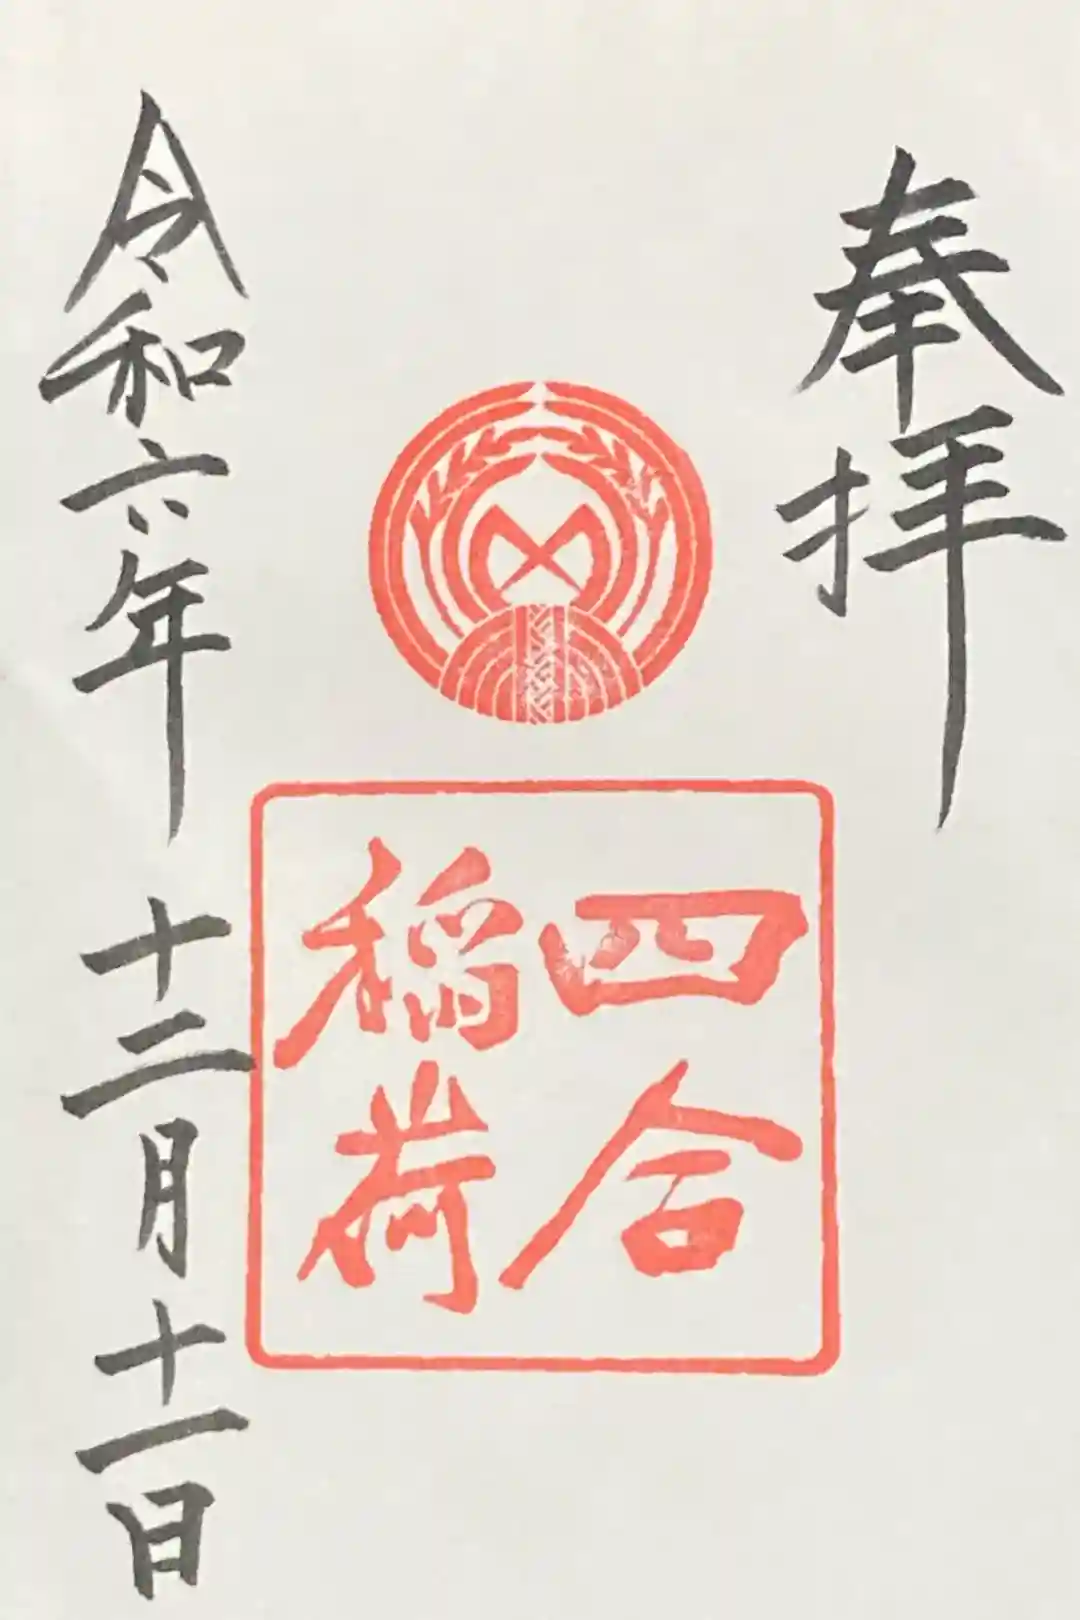 奉拝
四合
稲荷
令和六年 十二月十一日